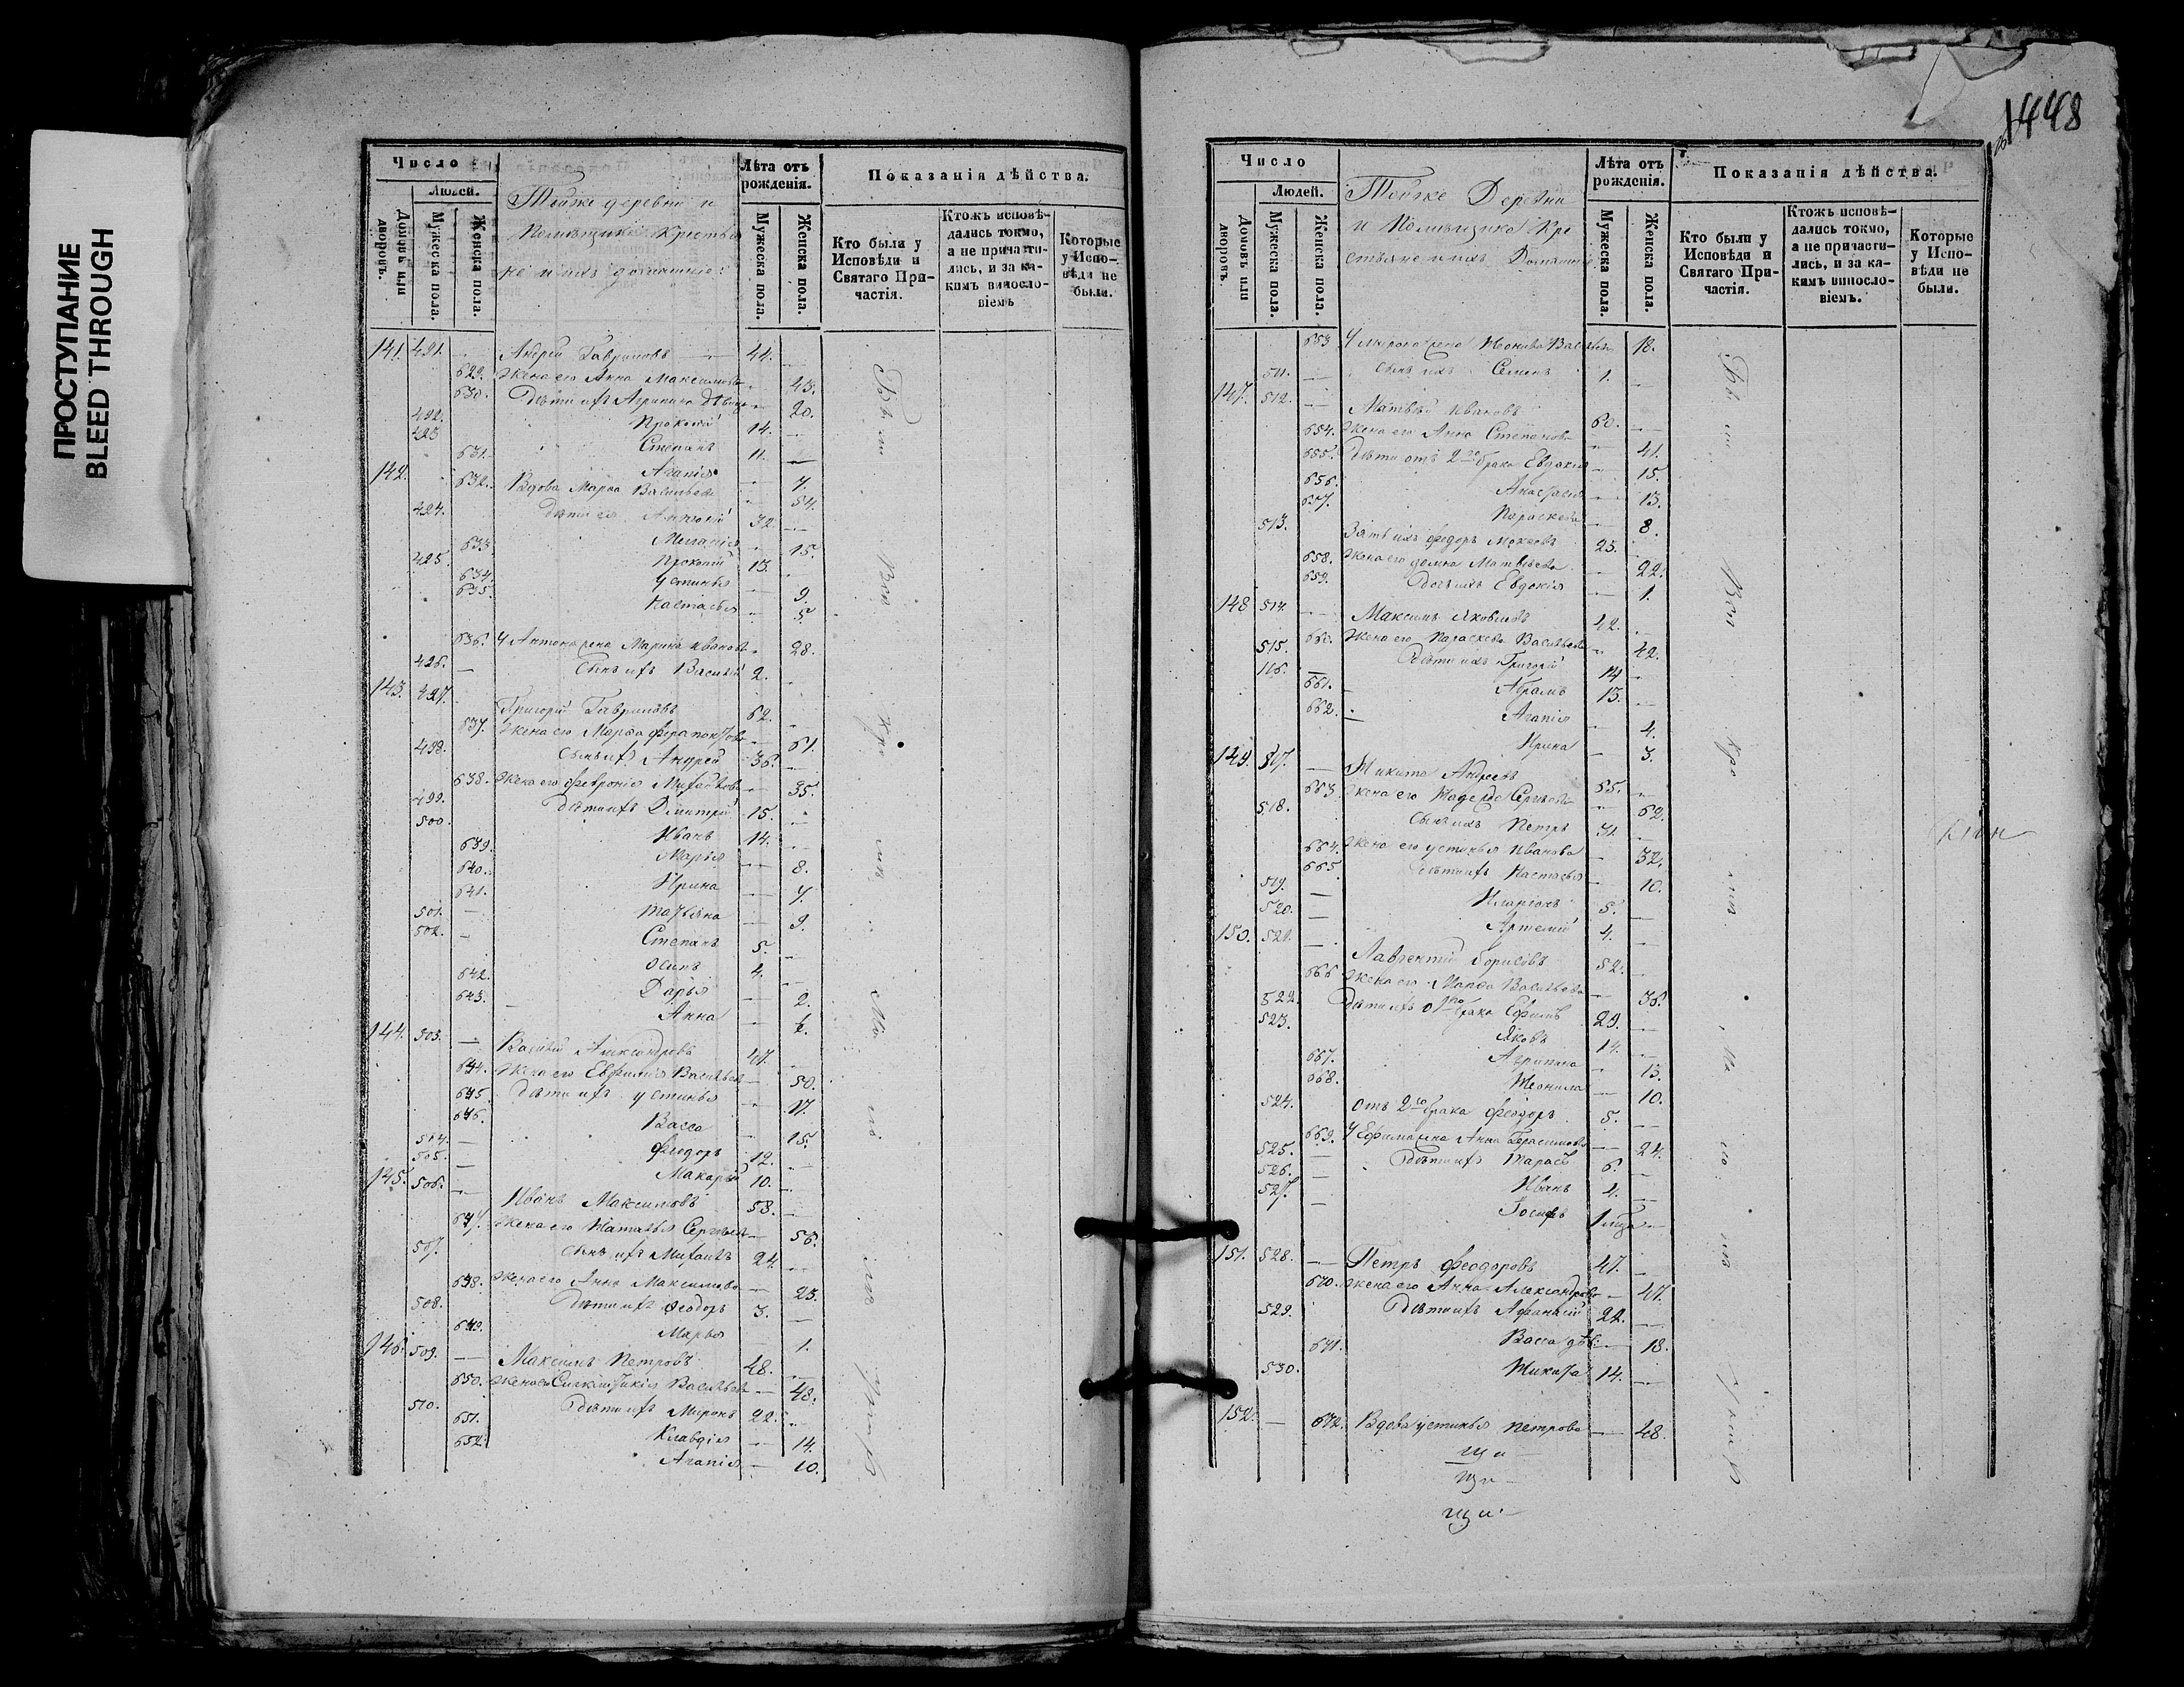 ПРОСТУПАНИЕ
BLEED THROUGH
Число
Людей.
Домовъ или дворовъ.
Мужеска пола.
Женска пола.
Тойже деревни и
помѣщика Крестья
не и ихъ домашніе:
Лѣта отъ рожденія.
Мужеска пола.
Женска пола.
Показанія дѣйства.
Кто были у Исповѣди и Святаго Причастія.
Ктожъ исповѣдались токмо, а не причастились, и за какимъ винословіемъ
Которые у Исповѣди не были.
141. 491. Андрей Гавриловъ 44.
629. Жена его Анна Максимова 43.
630. Дѣти ихъ Агрипина дѣвица 20.
492. Прокопій 14.
493 Степанъ 11.
631. Агапія 7.
142. 632. Вдова Марѳа Васильева 54.
494. Дѣти ея Антоній 32.
633. Меланія 15.
495. Прокопій 13.
634. Устинья 9.
635. Настасья 5.
636. У Антона жена Марина Иванова 28.
496. Сынъ ихъ Василій 2.
143. 497. Григорій Гавриловъ 62.
637. Жена его Марѳа Ферапонтова 61.
498. Сынъ ихъ Андрей 36.
638. Жена его Февронія Михайлова 35.
499. Дѣти ихъ Димитрій 15.
500. Иванъ 14.
639. Марья 8.
640. Ирина 7.
641. Татьяна 9.
501. Степанъ 5.
502. Осипъ 4.
642. Дарья 2.
643. Анна 1.
144. 503. Василій Александровъ 47.
644. Жена его Евфимія Васильева 50.
645. Дѣти ихъ Устинья 17.
646. Васса 15.
504. Феодоръ 12.
505. Макарій 10.
145. 506. Иванъ Максимовъ 58.
647. Жена его Наталья Сергѣева 56.
507. Сынъ ихъ Михаилъ 24.
648. Жена его Анна Максимова 23.
508. Дѣти ихъ Феодоръ 3.
649. Марья 1.
146. 509. Максимъ Петровъ 48.
650. Жена его Васильева 48.
510. Дѣти ихъ Миронъ 22.
651. Клавдія 14.
652. Агапія 10.
Бы ли Всѣ
448
Число
Людей.
Домовъ или дворовъ.
Мужеска пола.
Женска пола.
Тойже Деревни
и Помѣщика Кре
стьяне и ихъ Домашніе
Лѣта отъ рожденія.
Мужеска пола.
Женска пола.
Показанія дѣйства.
Кто были у Исповѣди и Святаго Причастія.
Ктожъ исповѣдались токмо, а не причастились, и за какимъ винословіемъ.
Которые у Исповѣди не были.
653 У Мирона жена Васильева 18.
511. Сынъ ихъ Семенъ 1.
147. 512. Матвѣй Ивановъ 60.
654. Жена его Анна Степанова 41.
655. Дѣти отъ 2го брака Евдокія 15.
656. Анастасія 13.
657. Параскева 8.
513. Зять ихъ Федоръ Мокеевъ 23.
658. Жена его Домна Матвѣева 22.
659. Дочь ихъ Евдокія 1.
148 514. Максимъ Яковлевъ 42.
660. Жена его Параскева Васильева 42.
515. Дѣти ихъ Григорій 14
516. Абрамъ 13.
661. Агапія 4.
662. Ирина 3.
149. 517. Никита Андреевъ 65.
663 Жена его Надежда Сергѣева 62.
518. Сынъ ихъ Петръ 31.
664. Жена его Устинья Иванова 32.
665. Дѣти ихъ Настасья 10.
519. Иларіонъ 5.
520. Артемій 4.
150. 521. Лаврентій Борисовъ 52.
666 Жена его Марѳа Васильева 36.
522. Дѣти ихъ отъ 1го брака Ефимъ 29.
523. Яковъ 14.
667. Агрипина 13.
668. Неонила 10.
524. Отъ 2го брака Феодоръ 5.
669. У Ефима жена Анна Герасимова 24.
525. Дѣти ихъ Тарасъ 6.
526. Иванъ 4.
527. Іосифъ 1
151. 528. Петръ Феодоровъ 47.
670. Жена его Анна Александрова 47.
529. Дѣти ихъ Афанасій 22.
671. Васса дѣв. 18.
530. Никита 14.
152. 672. Вдова Устинья Петрова 48.
Бы ли Всѣ